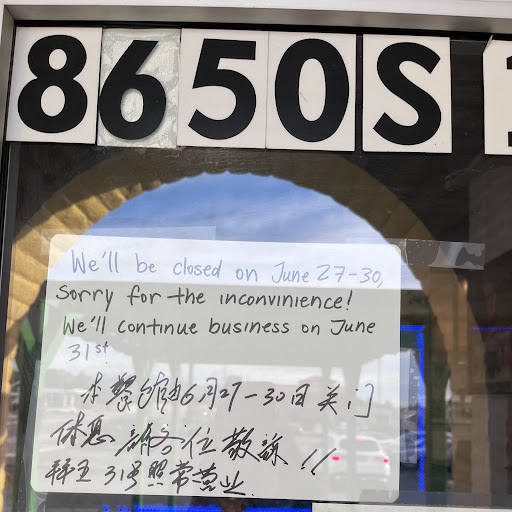 8650S
We'll be closed on June 27-30,
Sorry for the inconvinience!
We'll continue business on June
31st
本餐馆由6月27-30日关门
休息 请各位敬谅!!
31号照常营业.